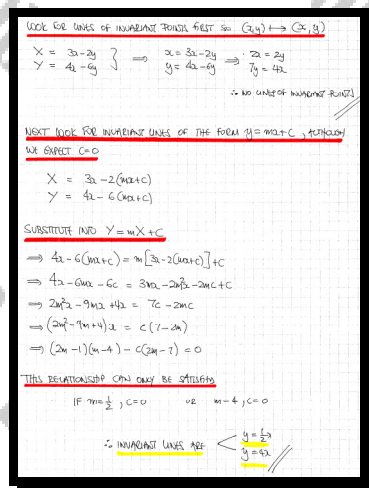 LOOK FOR LINES OF INVARIANT POINTS FIRST SO (x,y) ↦ (x,y)
X = 3x-2y
Y = 4x-6y } ⟹ x = 3x-2y
y = 4x-6y ⟹ 2x = 2y
7y = 4x
∴ NO LINES OF INVARIANT POINTS
NEXT LOOK FOR INVARIANT LINES OF THE FORM y = mx+c, ALTHOUGH
WE EXPECT C=0
X = 3x - 2(mx+c)
Y = 4x - 6(mx+c)
SUBSTITUTE INTO Y = mX + C
⟹ 4x - 6(mx+c) = m[3x-2(mx+c)] + C
⟹ 4x - 6mx - 6c = 3mx - 2m²x - 2mc + c
⟹ 2m²x - 9mx + 4x = 7c - 2mc
⟹ (2m² - 9m + 4)x = c(7-2m)
⟹ (2m-1)(m-4) - c(2m-7) = 0
THIS RELATIONSHIP CAN ONLY BE SATISFIED
IF m = 1/2, c=0 OR m-4, c=0
∴ INVARIANT LINES ARE y = 1/2x
y = 4x